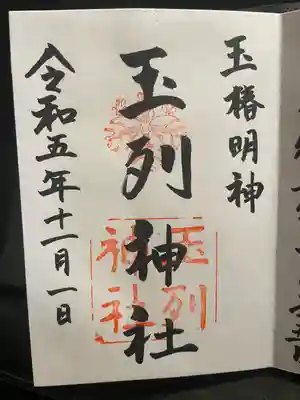 玉椿明神
玉列神社
玉列
神社
令和五年十一月一日